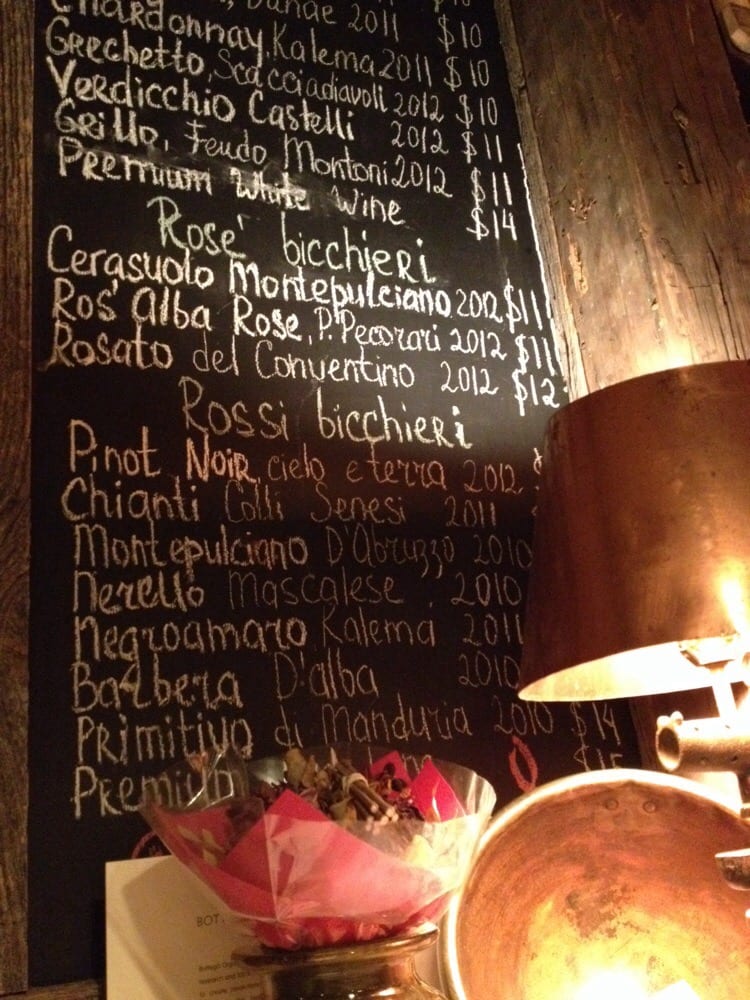 Danae 2011 $10
Chardonnay, Kalema 2011 $10
Grechetto, Scacciadiavoli 2012 $10
Verdicchio Castelli 2012 $11
Grillo, Feudo Montoni 2012 $11
Premium White Wine $14
Rose' bicchieri
Cerasuolo Montepulciano 2012 $11
Ros' Alba Rose, P. Pecorari 2012 $11
Rosato del Conventino 2012 $12
Rossi bicchieri
Pinot Noir, cielo e terra 2012
Chianti Colli Senesi 2011
Montepulciano D'Abruzzo 2010
Nerello Mascalese 2010
Negroamaro Kalema 2011
Barbera D'alba 2010
Primitivo di Manduria 2010 $14
Premium $15
BOT